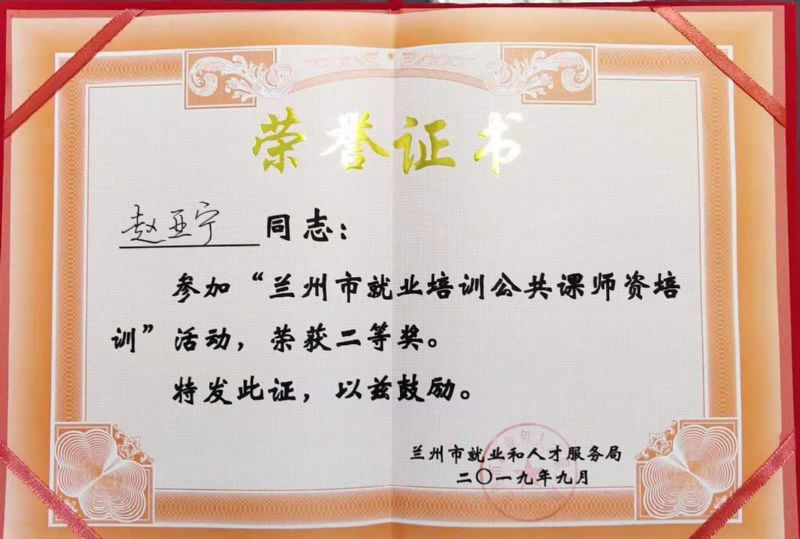 荣誉证书
赵亚宁 同志：
参加“兰州市就业培训公共课师资培
训”活动，荣获二等奖。
特发此证，以兹鼓励。
兰州市就业和人才服务局
二〇一九年九月